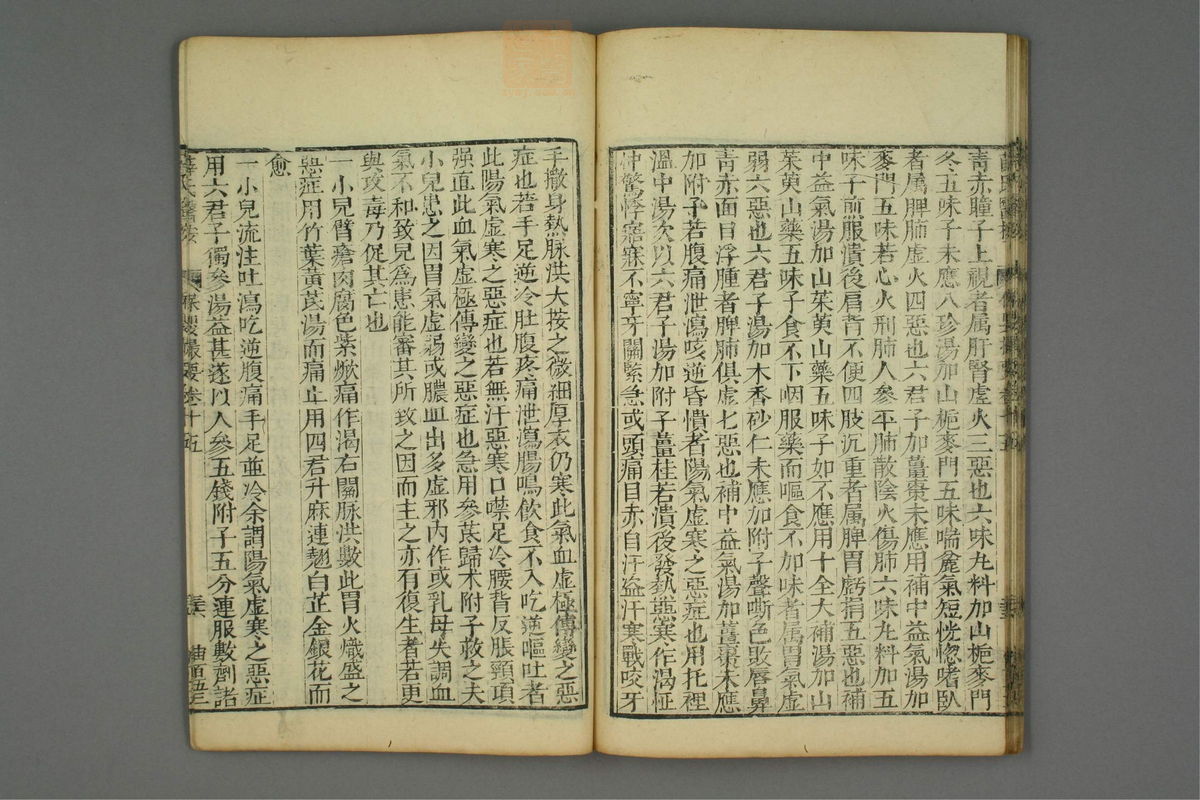 青赤瞳子上視者属肝腎虚火三惡也六味丸料加山梔麥門
冬五味子未應八珍湯加山梔麥門五味喘麄氣短恍惚嗜卧
者属脾肺虚火四惡也六君子加薑棗未應用補中益氣湯加
麥門五味若心火刑肺人參平肺散陰火傷肺六味丸料加五
味子煎服潰後肩背不便四肢沉重者属脾胃虧損五惡也補
中益氣湯加山茱萸山藥五味子如不應用十全大補湯加山
茱萸山藥五味子食不下咽服藥而嘔食不加味者属胃氣虚
弱六惡也六君子湯加木香砂仁未應加附子聲嘶色敗唇鼻
青赤面目浮腫者脾肺俱虚七惡也補中益氣湯加薑棗未應
加附子若腹痛泄瀉咳逆昏憒者陽氣虚寒之惡症也用托裡
溫中湯次以六君子湯加附子薑桂若潰後發熱惡寒作渴怔
忡驚悸寤寐不寧牙關緊急或頭痛目赤自汗盗汗寒戰咬牙
手撒身熱脉洪大按之微細厚衣仍寒此氣血虚極傳變之惡
症也若手足逆冷肚腹疼痛泄瀉腸鳴飲食不入吃逆嘔吐者
此陽氣虚寒之惡症也若無汗惡寒口噤足冷腰背反張頸項
强直此血氣虚極傳變之惡症也急用參芪歸术附子救之夫
小兒患之因胃氣虚弱或膿血出多虚邪内作或乳母失調血
氣不和致兒為患能審其所致之因而主之亦有復生者若更
與攻毒乃促其亡也
一小兒臂瘡肉腐色紫焮痛作渴右關脉洪數此胃火熾盛之
惡症用竹葉黃芪湯而痛止用四君升麻連翹白芷金銀花而
愈
一小兒流注吐瀉吃逆腹痛手足並冷余謂陽氣虚寒之惡症
用六君子獨參湯益甚遂以人參五錢附子五分連服數劑諸
保嬰撮要卷十五